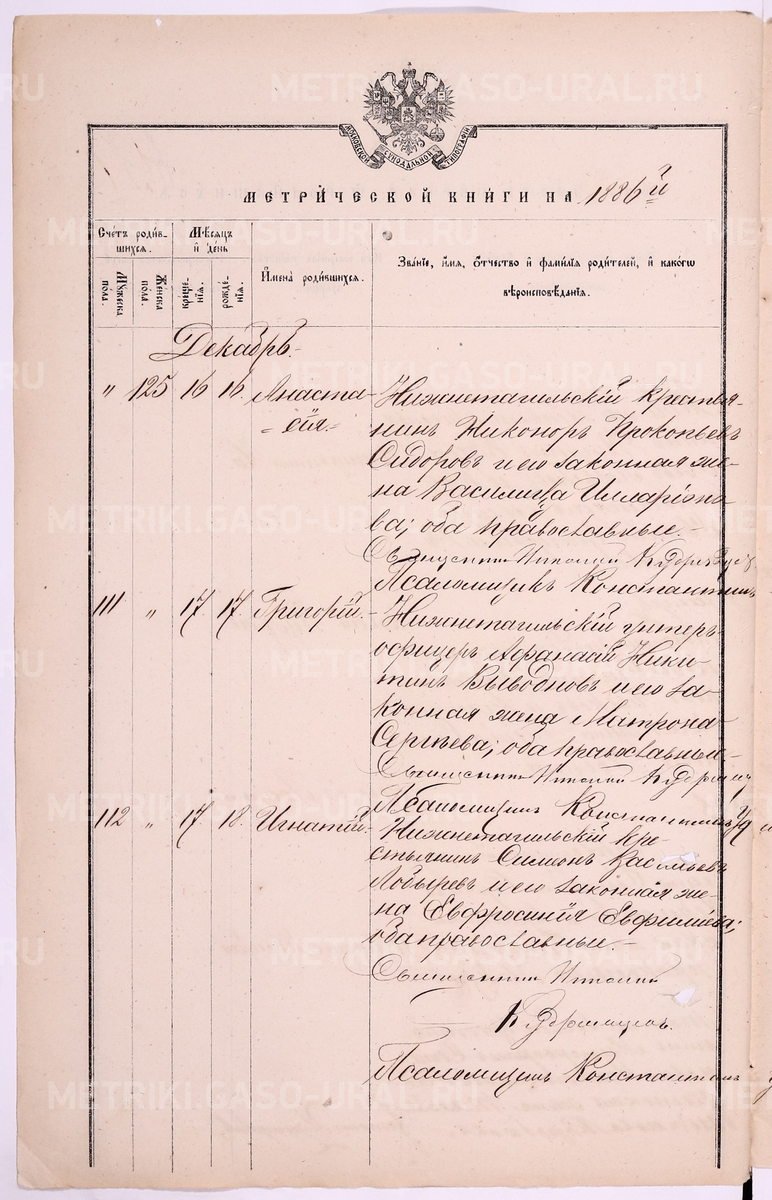 МОСКОВСКОЙ СѴНОДАЛЬНОЙ ТИПОГРАФІИ
МЕТРИ́ЧЕСКОЙ КНИ́ГИ НА 1886 й
Сче́тъ роди́в-
шихся.
Мѣсяцъ
и҆ де́нь
И҆мена̀ роди́вшихся.
Зва́нїе, и҆́мя, ѻ҆́тчество и҆ фами́лїя роди́телей, и҆ како́гѡ
вѣроисповѣ́данїя.
Мꙋ́жеска
по́ла.
Же́нска
по́ла.
креще́-
нїя.
рожде́-
нїя.
Декабрь.
" 125 16 16 Анаста-
сія.
Нижнетагильскій крестья-
нинъ Никоноръ Прокопьевъ
Сидоровъ и его законная же-
на Василиса Илларіоно-
ва; оба православные.
Священникъ Николай
Псаломщикъ Константинъ
111 " 17 17 Григорій.
Нижнетагильскій унтеръ-
офицеръ Афанасій Ники-
тинъ Выводновъ и его за-
конная жена Матрона
Сергѣева; оба православные.
Священникъ
Псаломщикъ Константинъ
112 " 17 18 Игнатій.
Нижнетагильскій кре-
стьянинъ Симеонъ Васильевъ
Лобыревъ и его законная же-
на Евфросинія Евфиміева;
оба православные.
Священникъ
Псаломщикъ Константинъ
METRIKI.GASO-URAL.RU